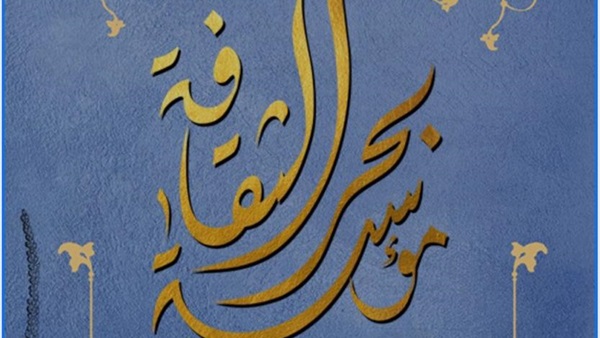 مؤسسة بحر الثقافة